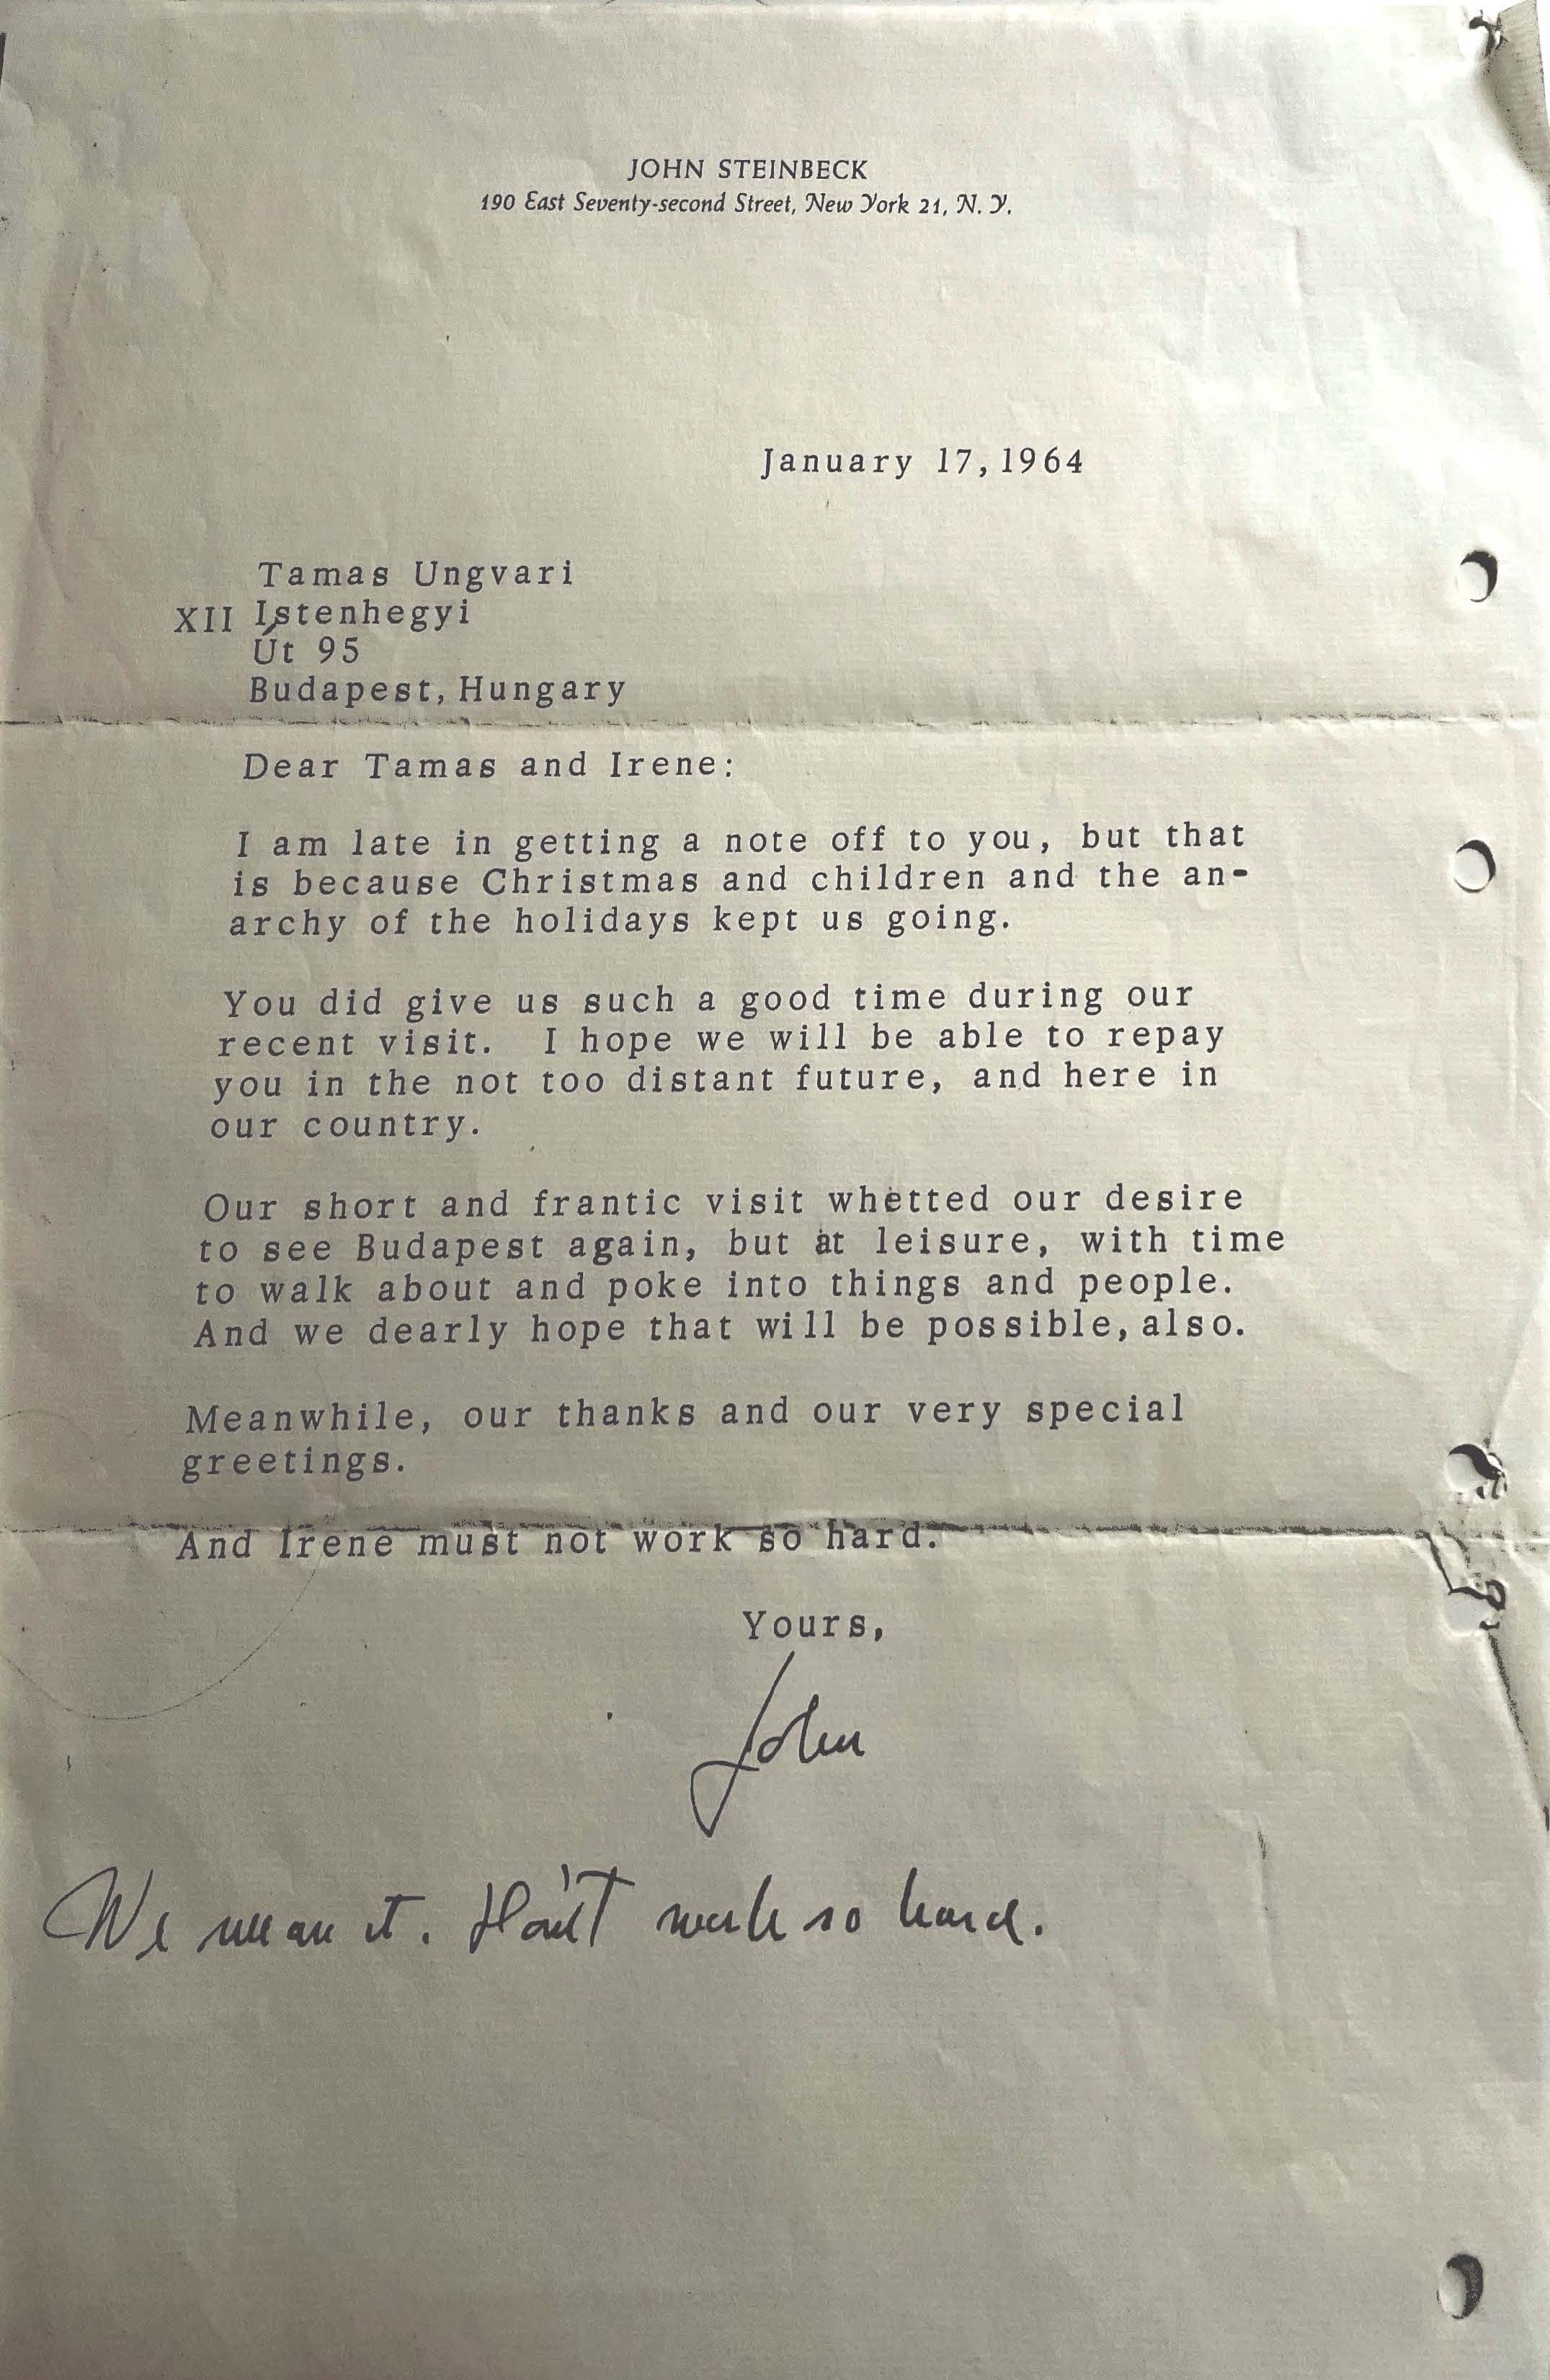 JOHN STEINBECK
190 East Seventy-second Street, New York 21, N. Y.
January 17, 1964
Tamas Ungvari
XII Istenhegyi
Út 95
Budapest, Hungary
Dear Tamas and Irene:
I am late in getting a note off to you, but that
is because Christmas and children and the an-
archy of the holidays kept us going.
You did give us such a good time during our
recent visit. I hope we will be able to repay
you in the not too distant future, and here in
our country.
Our short and frantic visit whetted our desire
to see Budapest again, but at leisure, with time
to walk about and poke into things and people.
And we dearly hope that will be possible, also.
Meanwhile, our thanks and our very special
greetings.
And Irene must not work so hard.
Yours,
John
We mean it. Don't work so hard.